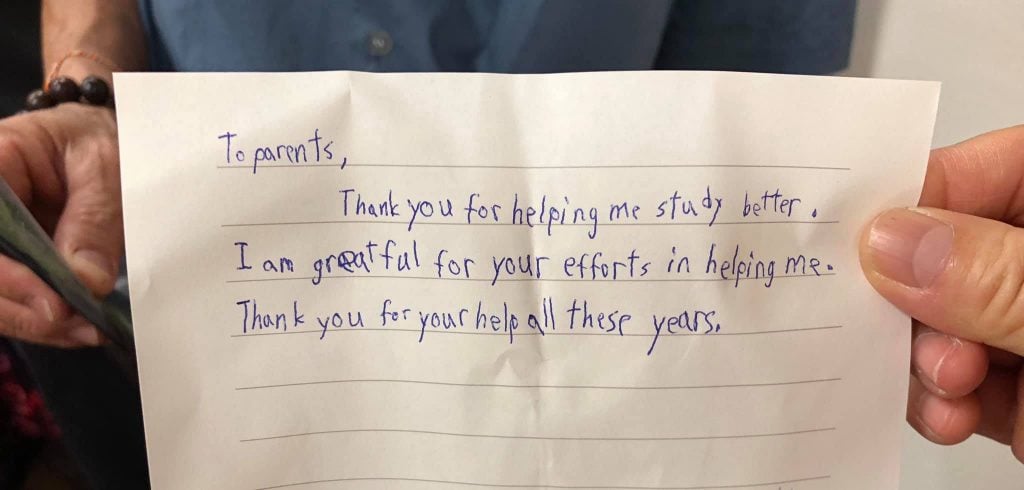 To parents,
Thank you for helping me study better.
I am greatful for your efforts in helping me.
Thank you for your help all these years.